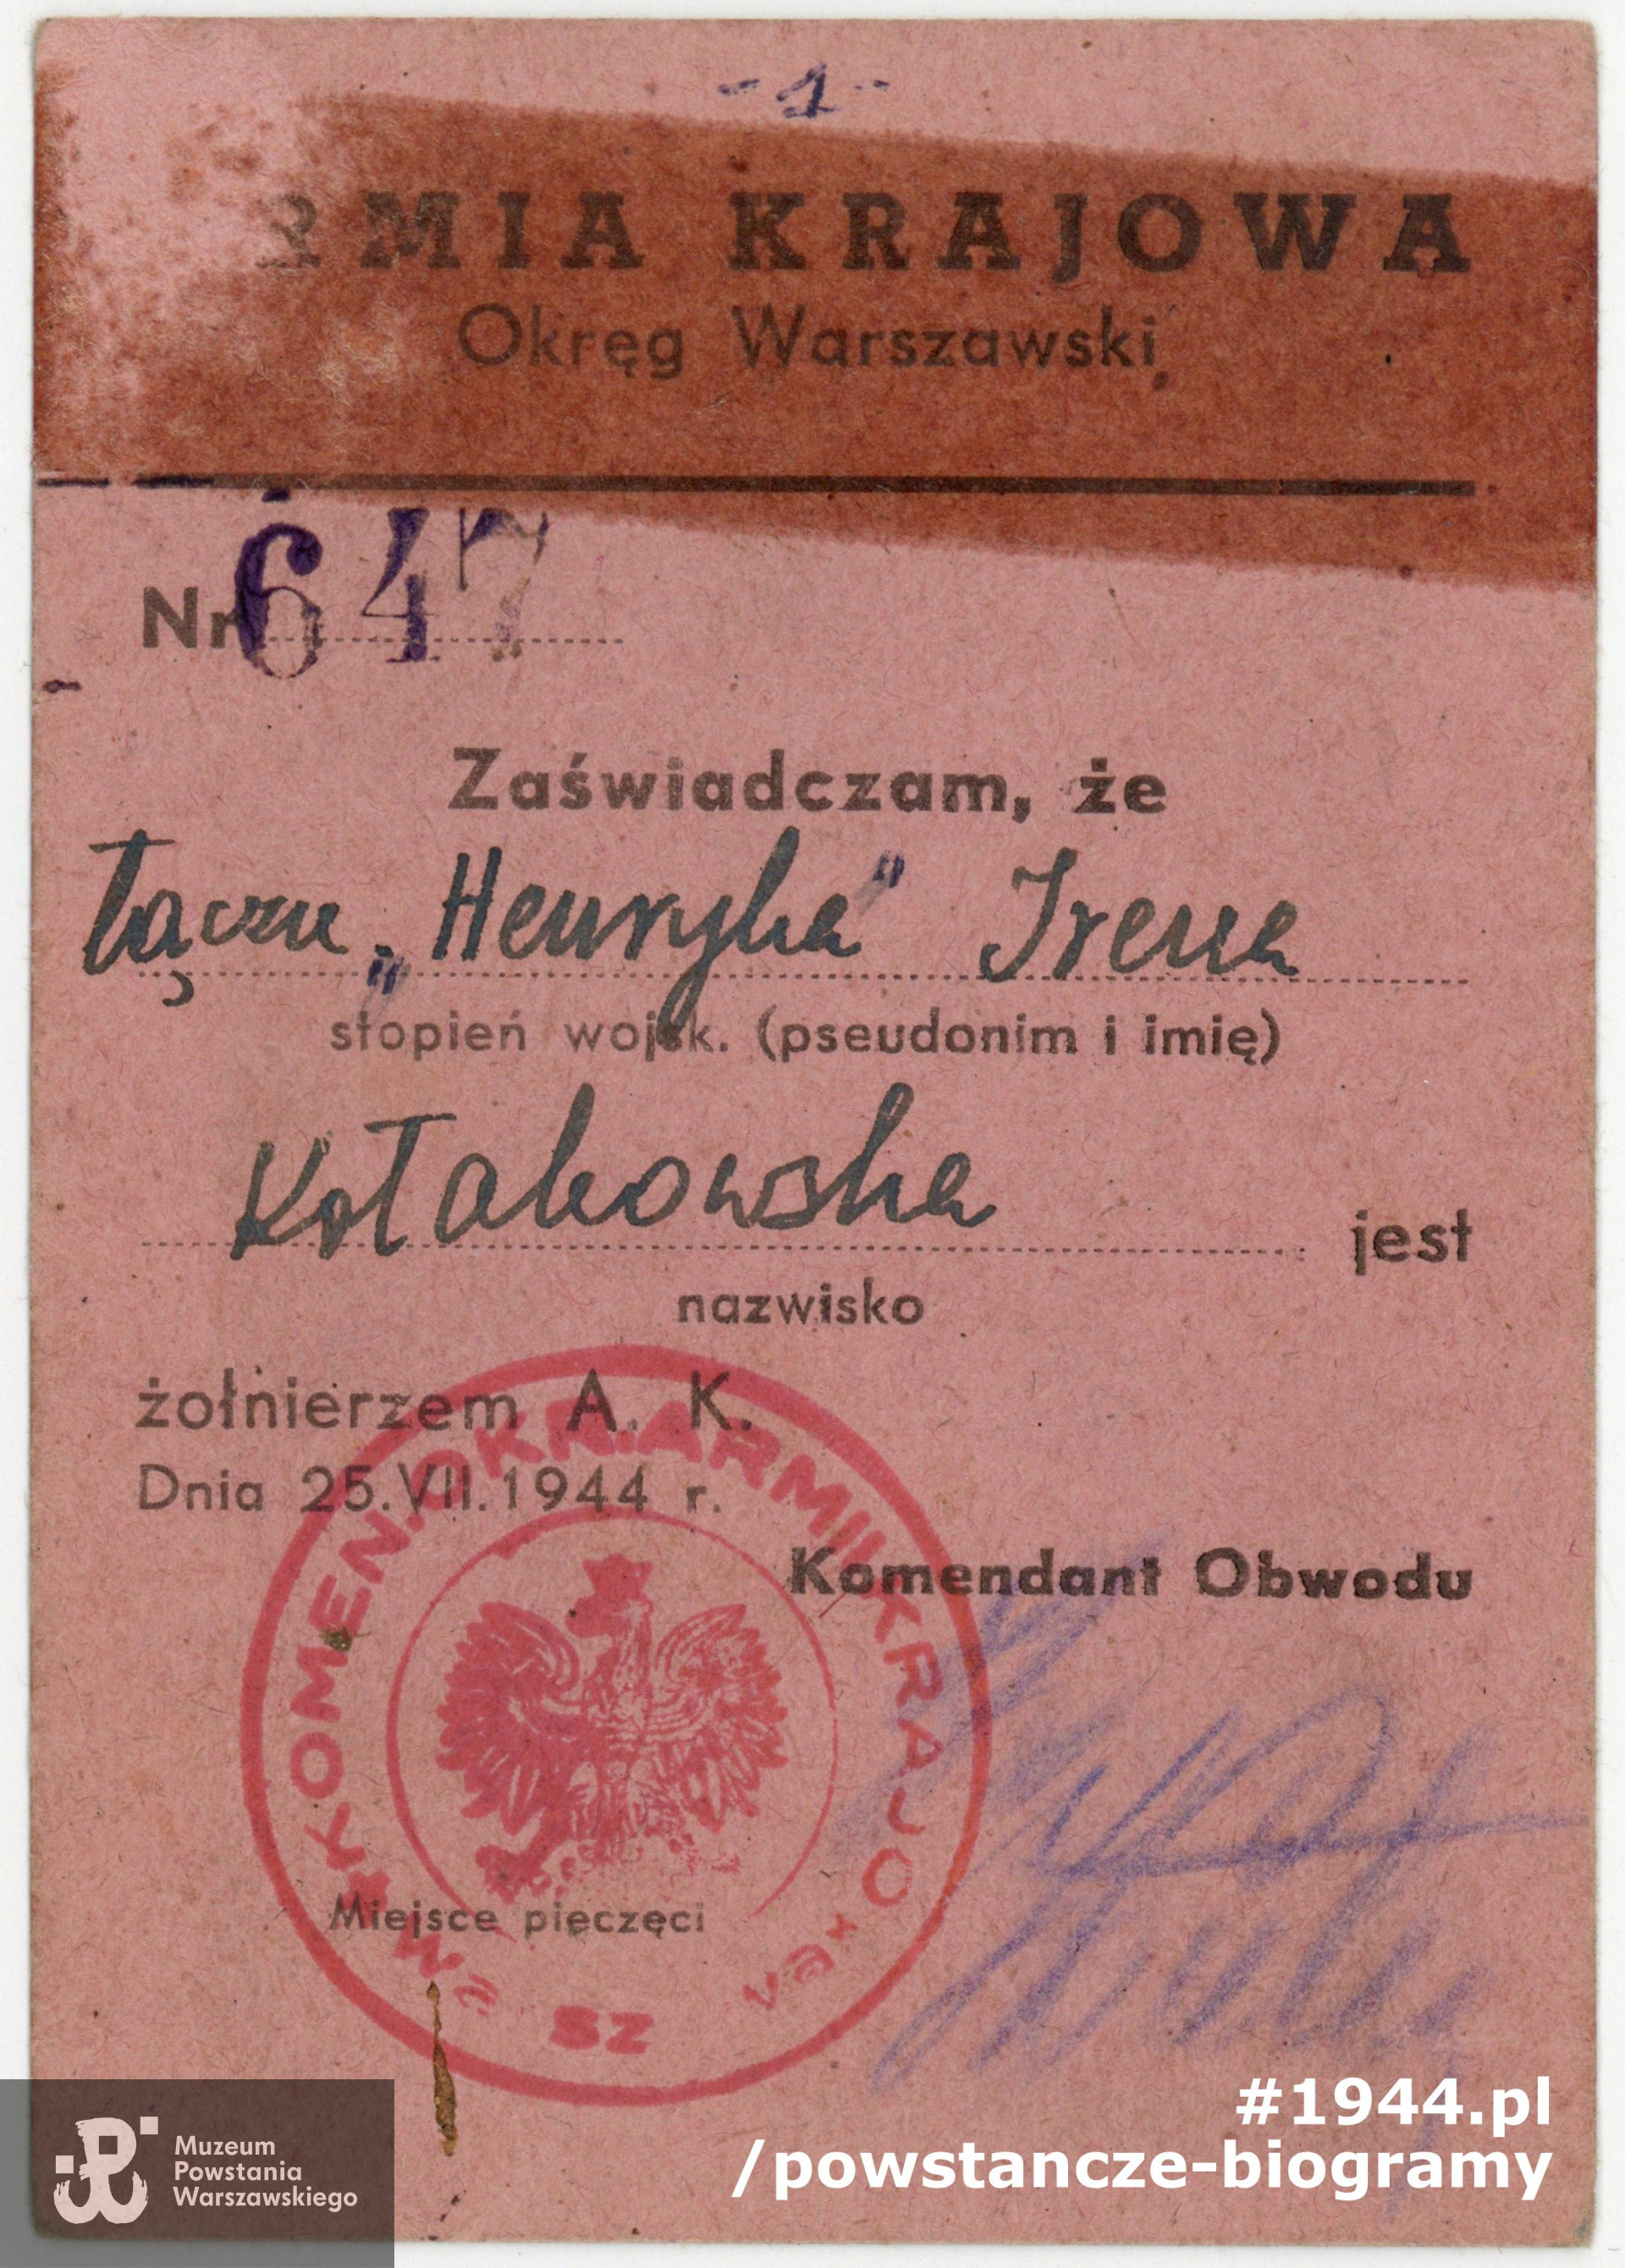 - 1 -
RMIA KRAJOWA
Okręg Warszawski
Nr 647
Zaświadczam, że
Łączn. „Henryka" Irena
stopień wojsk. (pseudonim i imię)
Kołakowska jest
nazwisko
żołnierzem A. K.
Dnia 25.VII.1944 r.
Komendant Obwodu
KOMEN. OKR. ARMII KRAJO
SZ
Miejsce pieczęci
#1944.pl
/powstancze-biogramy
Muzeum
Powstania
Warszawskiego